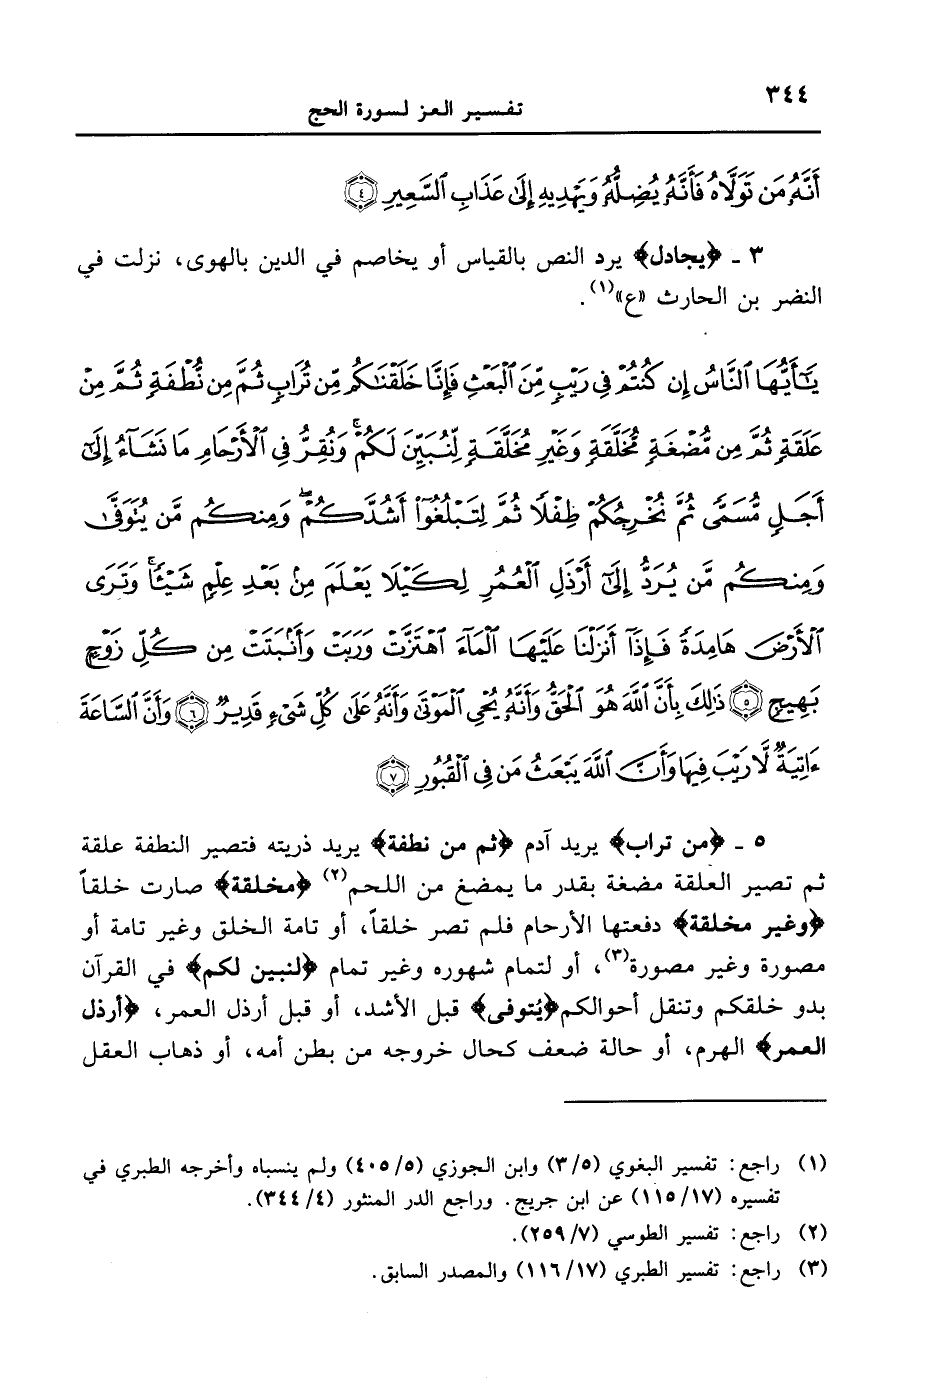 ٣٤٤
تفسير العز لسورة الحج
أَنَّهُۥ مَن تَوَلَّاهُ فَأَنَّهُۥ يُضِلُّهُۥ وَيَهْدِيهِ إِلَىٰ عَذَابِ ٱلسَّعِيرِ ﴿٤﴾
٣ ـ ﴿يجادل﴾ يرد النص بالقياس أو يخاصم في الدين بالهوى، نزلت في
النضر بن الحارث «ع»(١).
يَـٰٓأَيُّهَا ٱلنَّاسُ إِن كُنتُمْ فِى رَيْبٍ مِّنَ ٱلْبَعْثِ فَإِنَّا خَلَقْنَـٰكُم مِّن تُرَابٍ ثُمَّ مِن نُّطْفَةٍ ثُمَّ مِنْ
عَلَقَةٍ ثُمَّ مِن مُّضْغَةٍ مُّخَلَّقَةٍ وَغَيْرِ مُخَلَّقَةٍ لِّنُبَيِّنَ لَكُمْ ۚ وَنُقِرُّ فِى ٱلْأَرْحَامِ مَا نَشَآءُ إِلَىٰٓ
أَجَلٍ مُّسَمًّى ثُمَّ نُخْرِجُكُمْ طِفْلًا ثُمَّ لِتَبْلُغُوٓا۟ أَشُدَّكُمْ ۖ وَمِنكُم مَّن يُتَوَفَّىٰ
وَمِنكُم مَّن يُرَدُّ إِلَىٰٓ أَرْذَلِ ٱلْعُمُرِ لِكَيْلَا يَعْلَمَ مِنۢ بَعْدِ عِلْمٍ شَيْـًٔا ۚ وَتَرَى
ٱلْأَرْضَ هَامِدَةً فَإِذَآ أَنزَلْنَا عَلَيْهَا ٱلْمَآءَ ٱهْتَزَّتْ وَرَبَتْ وَأَنۢبَتَتْ مِن كُلِّ زَوْجٍۭ
بَهِيجٍ ﴿٥﴾ ذَٰلِكَ بِأَنَّ ٱللَّهَ هُوَ ٱلْحَقُّ وَأَنَّهُۥ يُحْىِ ٱلْمَوْتَىٰ وَأَنَّهُۥ عَلَىٰ كُلِّ شَىْءٍ قَدِيرٌ ﴿٦﴾ وَأَنَّ ٱلسَّاعَةَ
ءَاتِيَةٌ لَّا رَيْبَ فِيهَا وَأَنَّ ٱللَّهَ يَبْعَثُ مَن فِى ٱلْقُبُورِ ﴿٧﴾
٥ ـ ﴿من تراب﴾ يريد آدم ﴿ثم من نطفة﴾ يريد ذريته فتصير النطفة علقة
ثم تصير العلقة مضغة بقدر ما يمضغ من اللحم(٢) ﴿مخلقة﴾ صارت خلقاً
﴿وغير مخلقة﴾ دفعتها الأرحام فلم تصر خلقاً، أو تامة الخلق وغير تامة أو
مصورة وغير مصورة(٣)، أو لتمام شهوره وغير تمام ﴿لنبين لكم﴾ في القرآن
بدو خلقكم وتنقل أحوالكم ﴿يُتوفى﴾ قبل الأشد، أو قبل أرذل العمر، ﴿أرذل
العمر﴾ الهرم، أو حالة ضعف كحال خروجه من بطن أمه، أو ذهاب العقل
(١) راجع: تفسير البغوي (٣/٥) وابن الجوزي (٤٠٥/٥) ولم ينسباه وأخرجه الطبري في
تفسيره (١١٥/١٧) عن ابن جريج. وراجع الدر المنثور (٣٤٤/٤).
(٢) راجع: تفسير الطوسي (٢٥٩/٧).
(٣) راجع: تفسير الطبري (١١٦/١٧) والمصدر السابق.